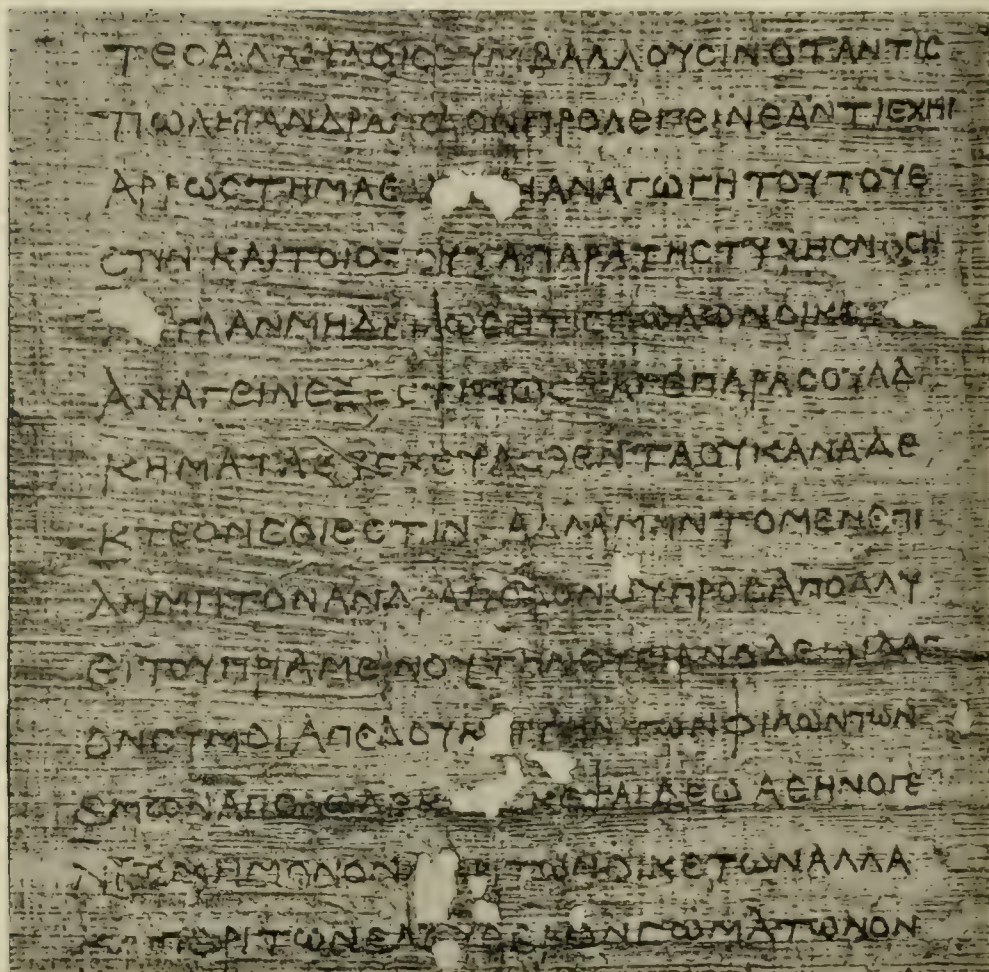 ΤΕϹΑΛΛΗΛΟΙϹϹΥΜΒΑΛΛΟΥϹΙΝΟΤΑΝΤΙϹ
ΠΩΛΗΙΑΝΔΡΑΠΟΔΟΝΠΡΟΛΕΓΕΙΝΕΑΝΤΙΕΧΗΙ
ΑΡΡΩϹΤΗΜΑΕ ΗΑΝΑΓΩΓΗΤΟΥΤΟΥΕ
ϹΤΙΝ ΚΑΙΤΟΙΟΠΟΤΕΤΑΠΑΡΑΤΗϹΤΥΧΗϹΝΟϹΗ
ΤΑΑΝΜΗΔΗΛΩϹΗΤΙϹΠΩΛΩΝΟΙΚΕ
ΑΝΑΓΕΙΝΕΞΕϹΤΙΠΩϹΤΑΓΕΠΑΡΑϹΟΥΑΔΙ
ΚΗΜΑΤΑϹΥϹΚΕΥΑϹΘΕΝΤΑΟΥΚΑΝΑΔΕ
ΚΤΕΟΝϹΟΙΕϹΤΙΝ ΑΛΛΑΜΗΝΤΟΜΕΝΕΠΙ
ΛΗΜΠΤΟΝΑΝΔΡΑΠΟΔΟΝΟΥΠΡΟϹΑΠΟΛΛΥ
ΕΙΤΟΥΠΡΙΑΜΕΝΟΥΤΗΝΟΥϹΙΑΝΟΔΕΜΙΔΑϹ
ΟΝϹΥΜΟΙΑΠΕΔΟΥΚ ΤΗΝ ΤΩΝΦΙΛΩΝΤΩΝ
ΕΜΩΝΑΠΟΛΩΛΕΚ ΚΕΨΑΙΔΕΩΑΘΗΝΟΓΕ
ΝΕϹΜΗΜΟΝΟΝ ΤΩΝΟΙΚΕΤΩΝΑΛΛΑ
Κ ΠΕΡΙΤΩΝΕΛΕΥΘΕΡΩΝϹΩΜΑΤΩΝΟΝ